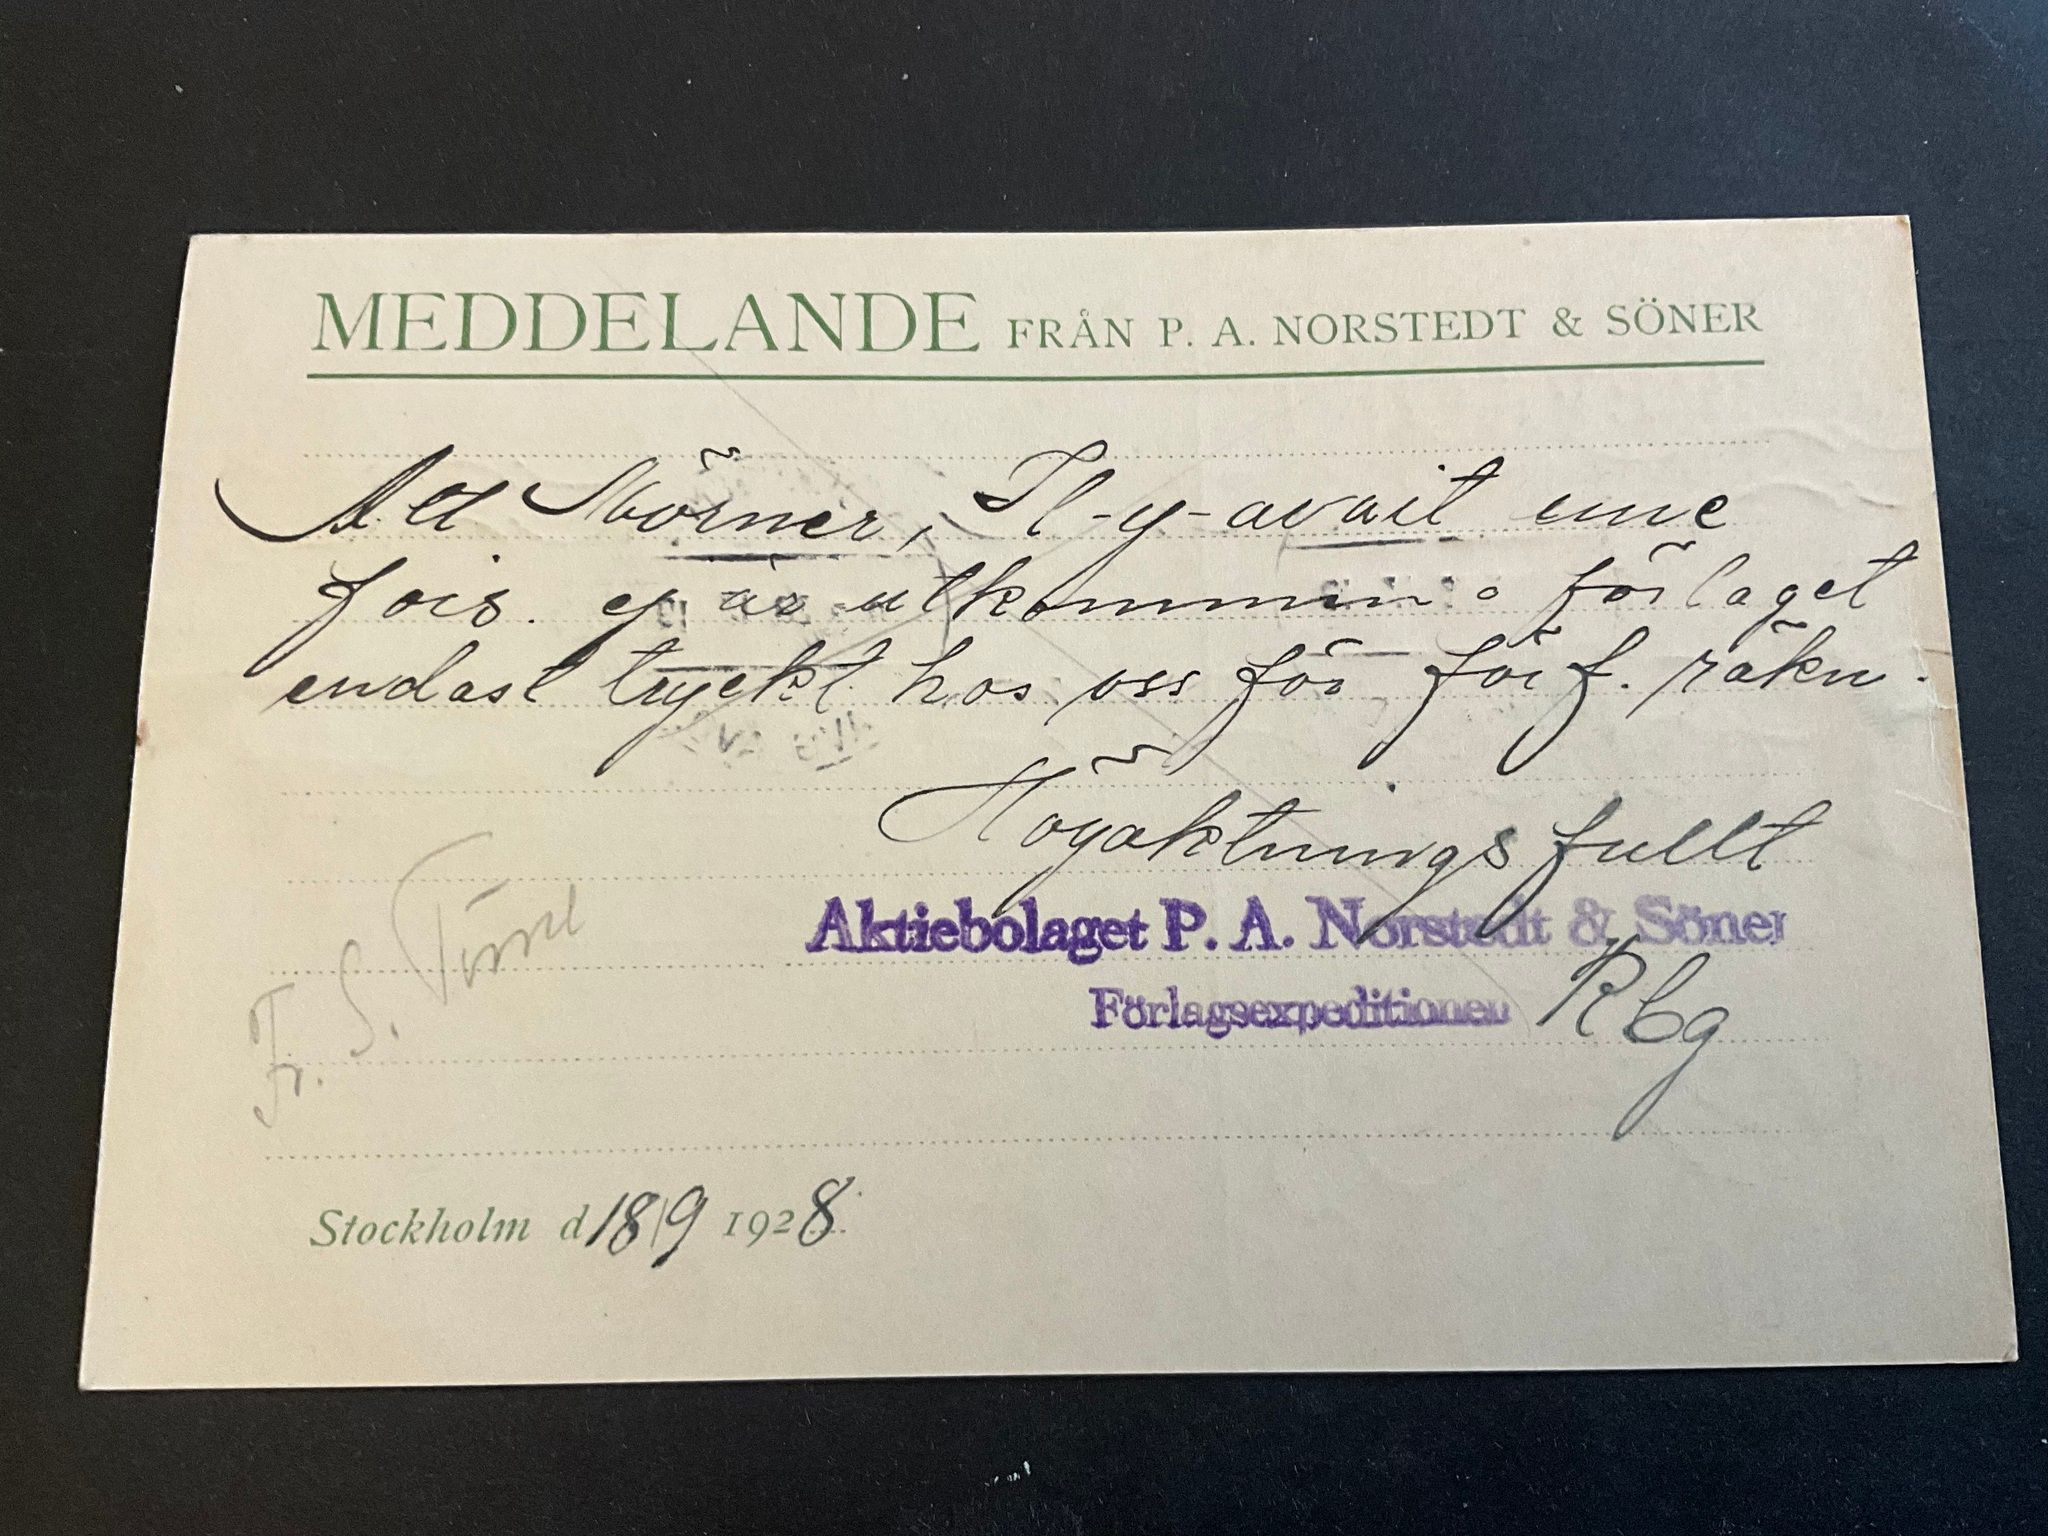 MEDDELANDE FRÅN P. A. NORSTEDT & SÖNER
Att Mörner, Il-y-avait une
fois. ej är utkommen å förlaget
endast tryckt hos oss för förf. räkn.
Högaktningsfullt
Aktiebolaget P. A. Norstedt & Söner
Förlagsexpeditionen Rbg
Fr. S.
Stockholm d 18/9 1928.